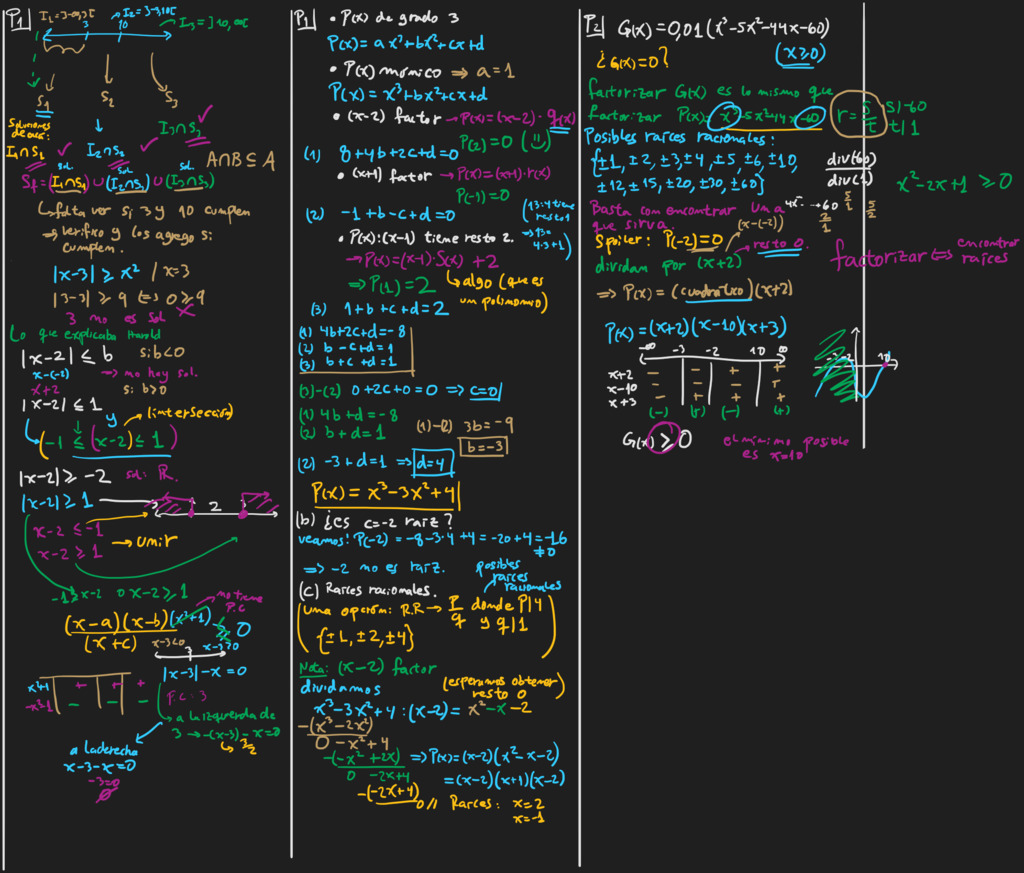 P1
I₁=]-∞,3[
I₂=]-3,10[
I₃=]10,∞[
3 10
S₁ S₂ S₃
Soluciones de acá:
I₁∩S₁ I₂∩S₂ I₃∩S₃
A∩B ⊆ A
sol. sol. sol.
Sf=(I₁∩S₁)∪(I₂∩S₂)∪(I₃∩S₃)
↳ falta ver si 3 y 10 cumplen
⇒ verifico y los agrego si cumplen.
|x-3| ≥ x² / x=3
|3-3| ≥ 9 ⇔ 0 ≥ 9
3 no es sol ✗
Lo que explicaba Harold
|x-2| ≤ b si b<0
x-(-2) → no hay sol.
x+2 si b>0
|x-2| ≤ 1
y (intersección)
(-1 ≤ (x-2) ≤ 1)
|x-2| ≥ -2 sol: ℝ.
|x-2| ≥ 1
2
x-2 ≤ -1
x-2 ≥ 1 → unir
-1 ≥ x-2 o x-2 ≥ 1
no tiene P.C
(x-a)(x-b)(x²+1) ≥ 0
(x+c)
x-3<0 3 x-3≥0
|x-3|-x=0
P.C: 3
x²+1 + + +
-x²-1 - - -
→ a la izquierda de 3 → -(x-3)-x=0
↳ 3/2
a la derecha
x-3-x=0
-3=0
∅
P1
• P(x) de grado 3
P(x)=ax³+bx²+cx+d
• P(x) mónico ⇒ a=1
P(x)=x³+bx²+cx+d
• (x-2) factor → P(x)=(x-2)·q(x)
P(2)=0 (:))
(1) 8+4b+2c+d=0
• (x+1) factor → P(x)=(x+1)·r(x)
P(-1)=0
(2) -1+b-c+d=0
(13:4 tiene resto 1
⇒ 13=4·3+1)
• P(x):(x-1) tiene resto 2.
→ P(x)=(x-1)·S(x)+2
⇒ P(1)=2
↳ algo (que es un polinomio)
(3) 1+b+c+d=2
(1) 4b+2c+d=-8
(2) b-c+d=1
(3) b+c+d=1
(3)-(2) 0+2c+0=0 ⇒ c=0
(1) 4b+d=-8
(2) b+d=1
(1)-(2) 3b=-9
b=-3
(2) -3+d=1 ⇒ d=4
P(x)=x³-3x²+4
(b) ¿es c=-2 raíz?
veamos: P(-2)=-8-3·4+4=-20+4=-16
≠0
⇒ -2 no es raíz.
posibles raíces racionales
(c) Raíces racionales.
(una opción: R.R → P/q donde P|4 y q|1
{±1,±2,±4})
Nota: (x-2) factor
dividamos (esperamos obtener resto 0)
x³-3x²+4:(x-2)=x²-x-2
-(x³-2x²)
0 -x²+4
-(-x²+2x)
0 -2x+4
-(-2x+4)
0//
⇒ P(x)=(x-2)(x²-x-2)
=(x-2)(x+1)(x-2)
Raíces: x=2
x=-1
P2
G(x)=0,01(x³-5x²-44x-60)
¿G(x)=0? (x≥0)
factorizar G(x) es lo mismo que
factorizar P(x)=x³-5x²-44x-60
r=S/t S|-60
t|1
Posibles raíces racionales:
{±1,±2,±3,±4,±5,±6,±10,
±12,±15,±20,±30,±60}
div(60)
div(1)
x²-2x+1 ≥ 0
Basta con encontrar una que sirva.
(x-(-2))
Spoiler: P(-2)=0
dividan por (x+2) → resto 0
factorizar ⇔ encontrar raíces
⇒ P(x)=(cuadrático)(x+2)
P(x)=(x+2)(x-10)(x+3)
-∞ -3 -2 10 ∞
x+2 - - + +
x-10 - - - +
x+3 - + + +
(-) (+) (-) (+)
-3 -2 10
G(x) ≥ 0
el mínimo posible es x=10